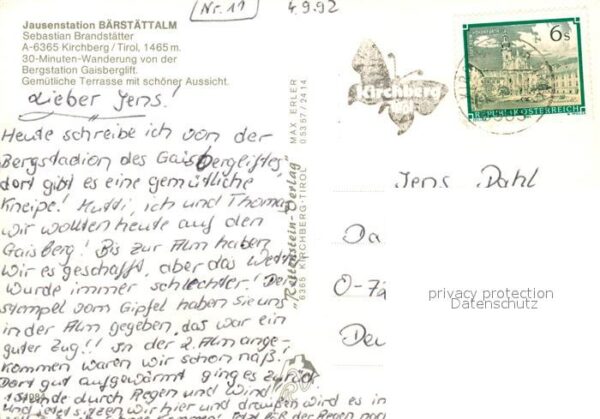 Nr. 11
4.9.92
Jausenstation BÄRSTÄTTALM
Sebastian Brandstätter
A-6365 Kirchberg / Tirol, 1465 m.
30-Minuten-Wanderung von der
Bergstation Gaisberglift.
Gemütliche Terrasse mit schöner Aussicht.
Lieber Jens!
Heute schreibe ich von der
Bergstadion des Gaisbergliftes,
dort gibt es eine gemütliche
Kneipe! Mutti, ich und Thomas
wir wollten heute auf den
Gaisberg! Bis zur Alm haben
wir es geschafft, aber das Wett
wurde immer schlechter! Den
Stempel vom Gipfel haben sie uns
in der Alm gegeben, das war ein
guter Zug!! In der 2. Alm ange-
kommen waren wir schon naß.
Dort gut aufgewärmt ging es zurück
1 Stunde durch Regen und Wind
und jetzt sitzen wir hier und draußen wird es
der Regen
"Rettenstein-Verlag"
6365 KIRCHBERG-TIROL
MAX ERLER
05357/2414
Kirchberg
Tirol
6s
REPUBLIK ÖSTERREICH
Jens Dahl
Da
O-72
Deu
privacy protection
Datenschutz